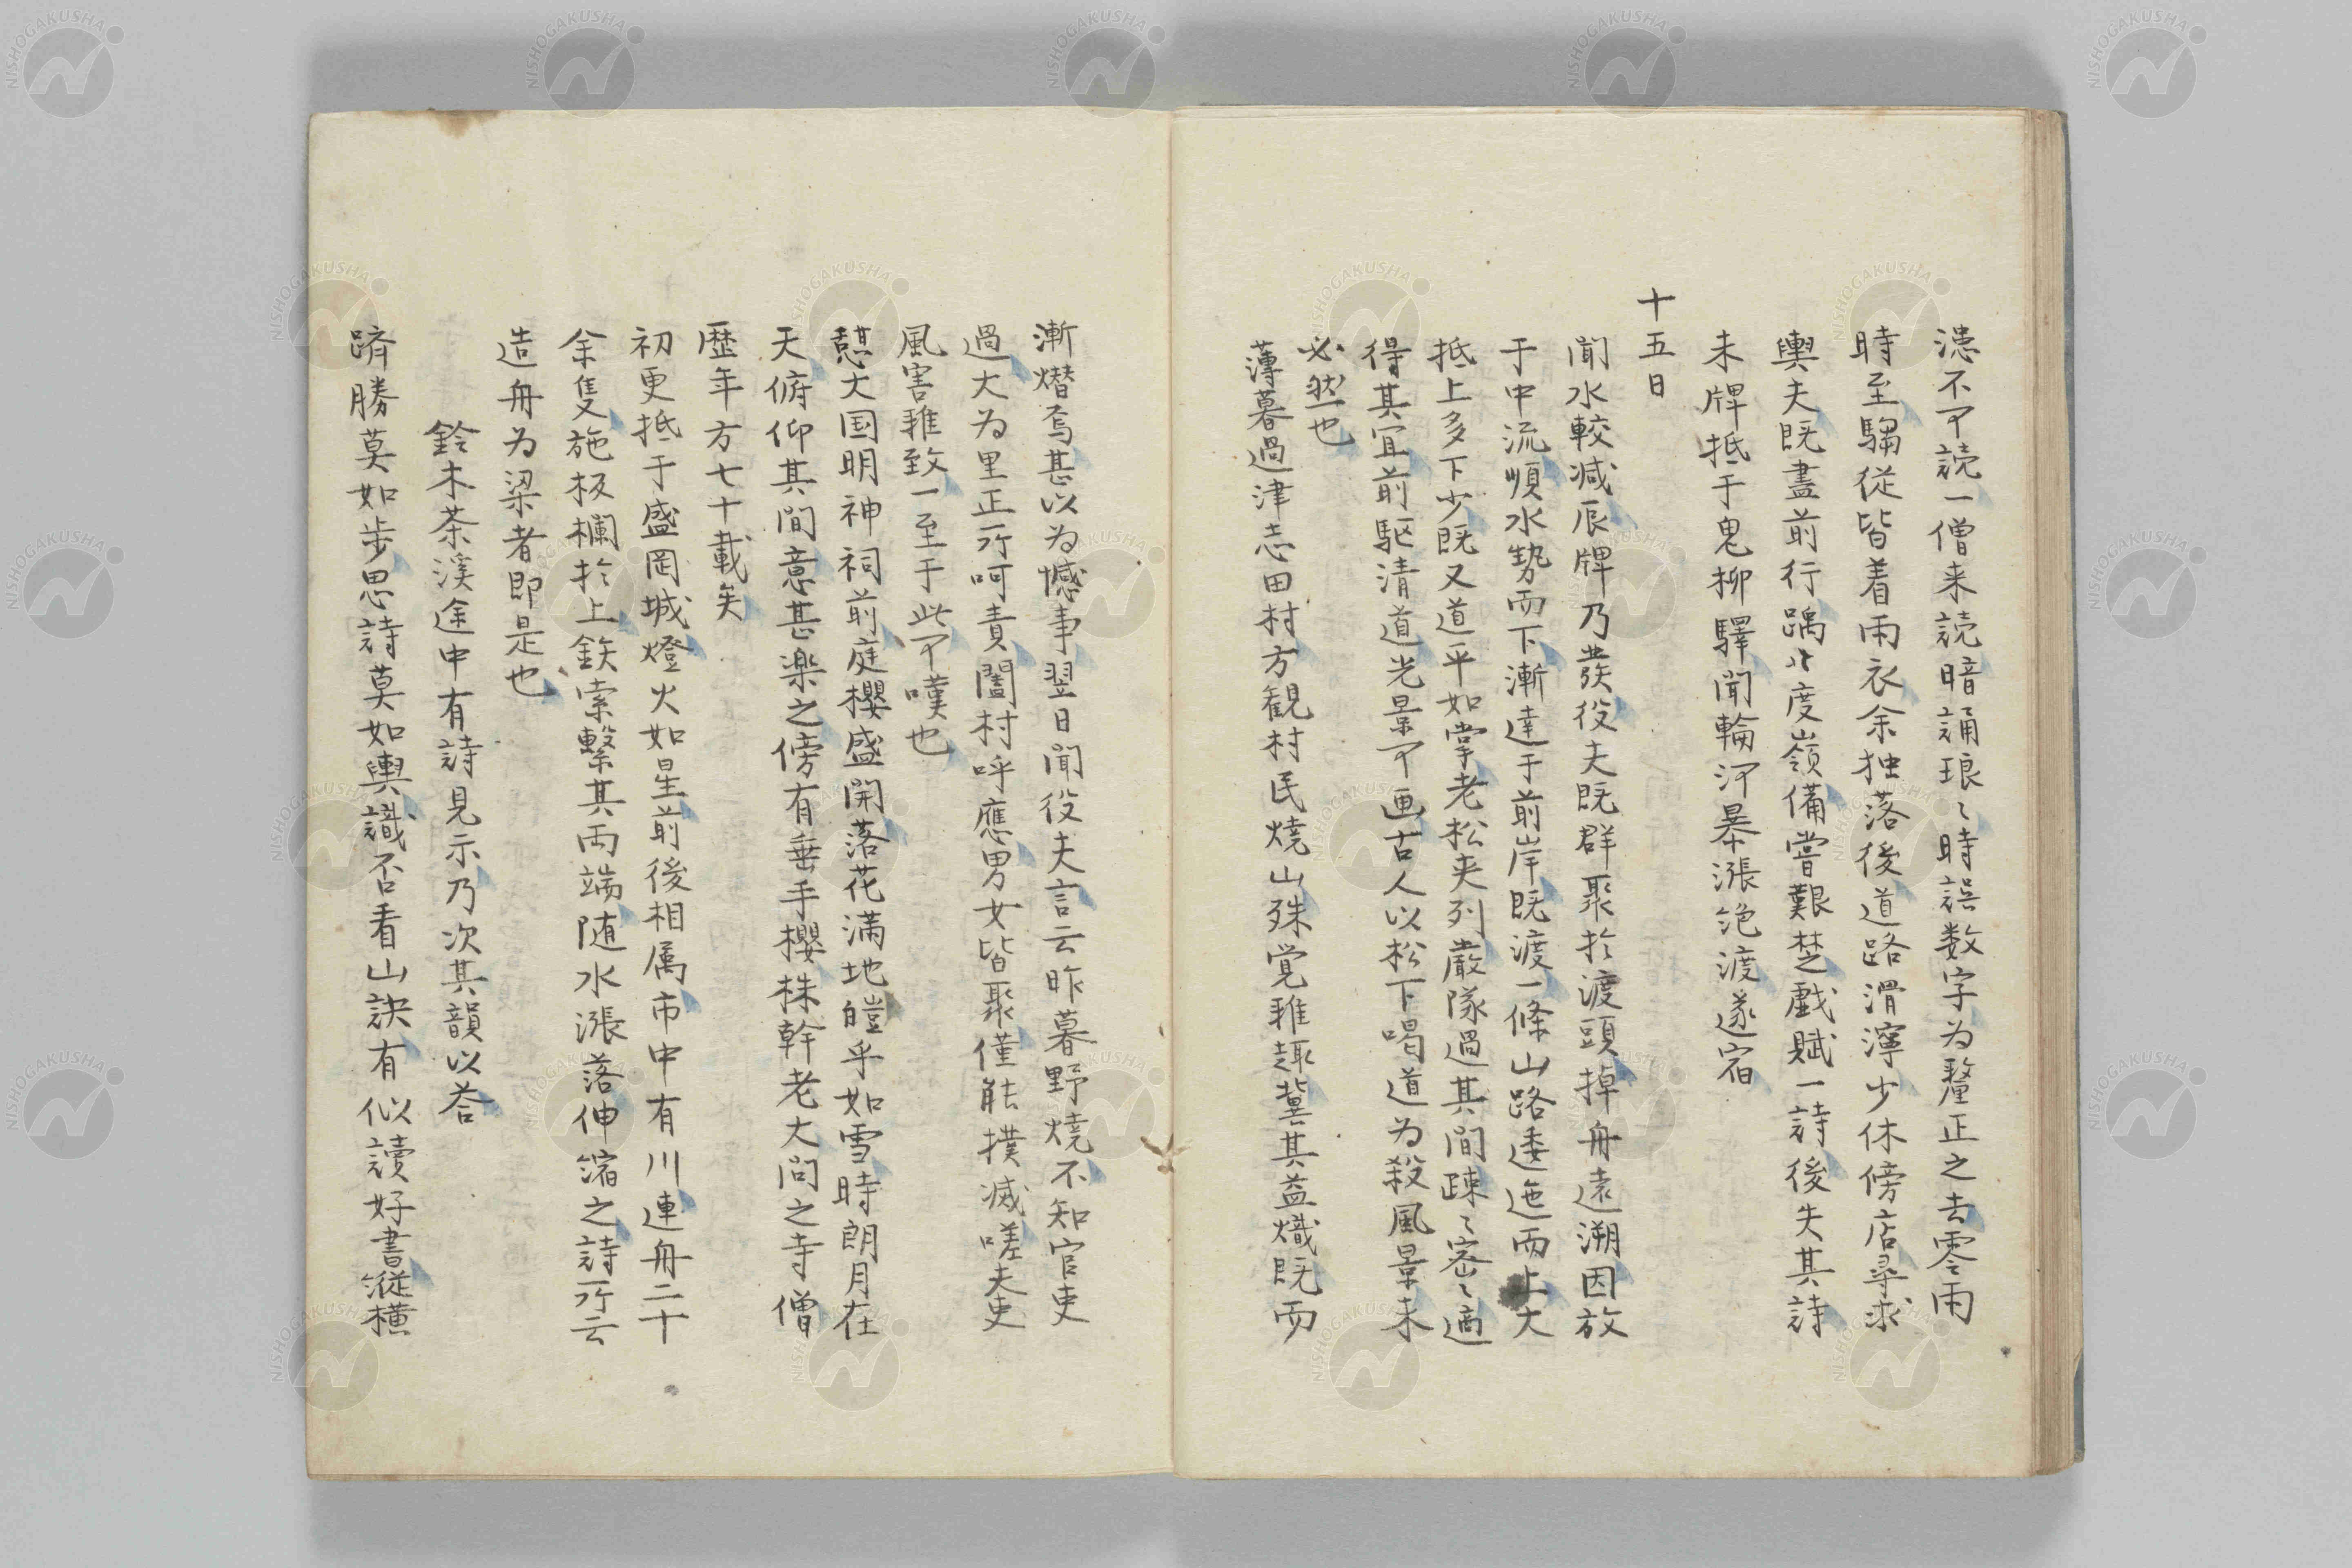 漶不可読一僧来読暗誦琅〻時誤数字为釐正之去零雨
時至騶従皆着雨衣余独落後道路滑濘少休傍店尋求
輿夫既盡前行踽〻度嶺備嘗艱楚戯賦一詩後失其詩
未牌抵于鬼柳驛聞輪河暴漲絶渡遂宿
十五日
聞水較減辰牌乃發役夫既群聚於渡頭掉舟遠溯因放
于中流順水勢而下漸達于前岸既渡一條山路逶迤而上大
抵上多下少既又道平如掌老松夾列嚴隊過其間疎〻密〻適
得其宜前駆清道光景可画古人以松下喝道为殺風景未
必然也
薄暮過津志田村方観村民焼山殊覚雅趣冀其益熾既而
漸熸焉甚以为憾事翌日聞役夫言云昨暮野焼不知官吏
過大为里正所呵責闔村呼應男女皆聚僅能撲滅嗟夫吏
風害雅致一至于此可嘆也
憇大国明神祠前庭櫻盛開落花満地皚乎如雪時朗月在
天俯仰其間意甚楽之傍有垂手櫻株幹老大問之寺僧
歴年方七十載矣
初更抵于盛岡城燈火如星前後相属市中有川連舟二十
余隻施板欄於上鉄索繋其両端随水漲落伸縮之詩所云
造舟为梁者即是也
鈴木茶溪途中有詩見示乃次其韻以荅
躋勝莫如歩思詩莫如輿識否看山訣有似讀好書縦横